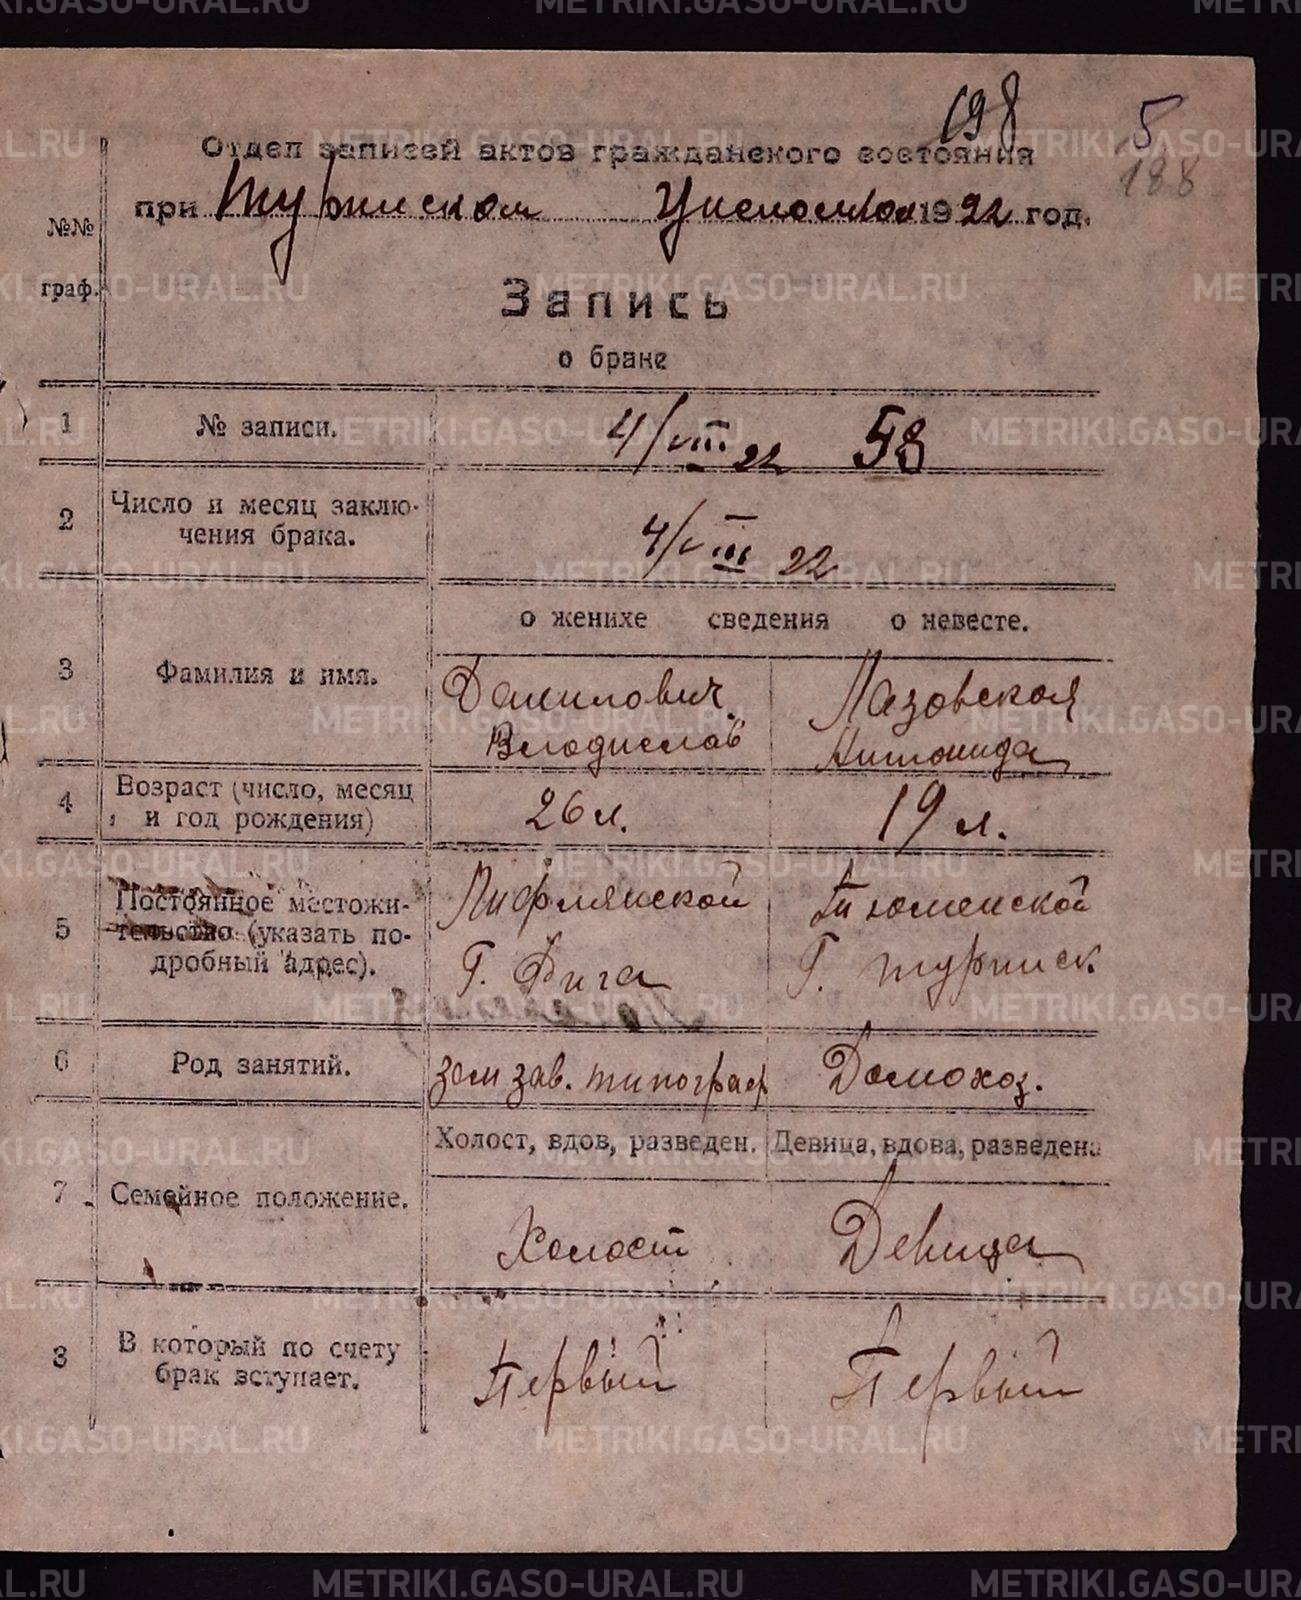 198
5
188
Отдел записей актов гражданского состояния
при Туринском Уисполком 1922 год.
№№
граф.
Запись
о браке
1 № записи. 4/VIII 22 58
2 Число и месяц заклю-
чения брака. 4/VIII 22
о женихе сведения о невесте.
3 Фамилия и имя. Данилович Лазовская
Владислав Антонида
4 Возраст (число, месяц
и год рождения) 26 л. 19 л.
5 Постоянное местожи-
тельство (указать по-
дробный адрес).
Лифлянской
Г. Рига
Тюменской
Г. Туринск.
6 Род занятий. зам зав. типограф Домохоз.
Холост, вдов, разведен. Девица, вдова, разведена
7 Семейное положение. Холост Девица
8 В который по счету
брак вступает. Первый Первый
METRIKI.GASO-URAL.RU